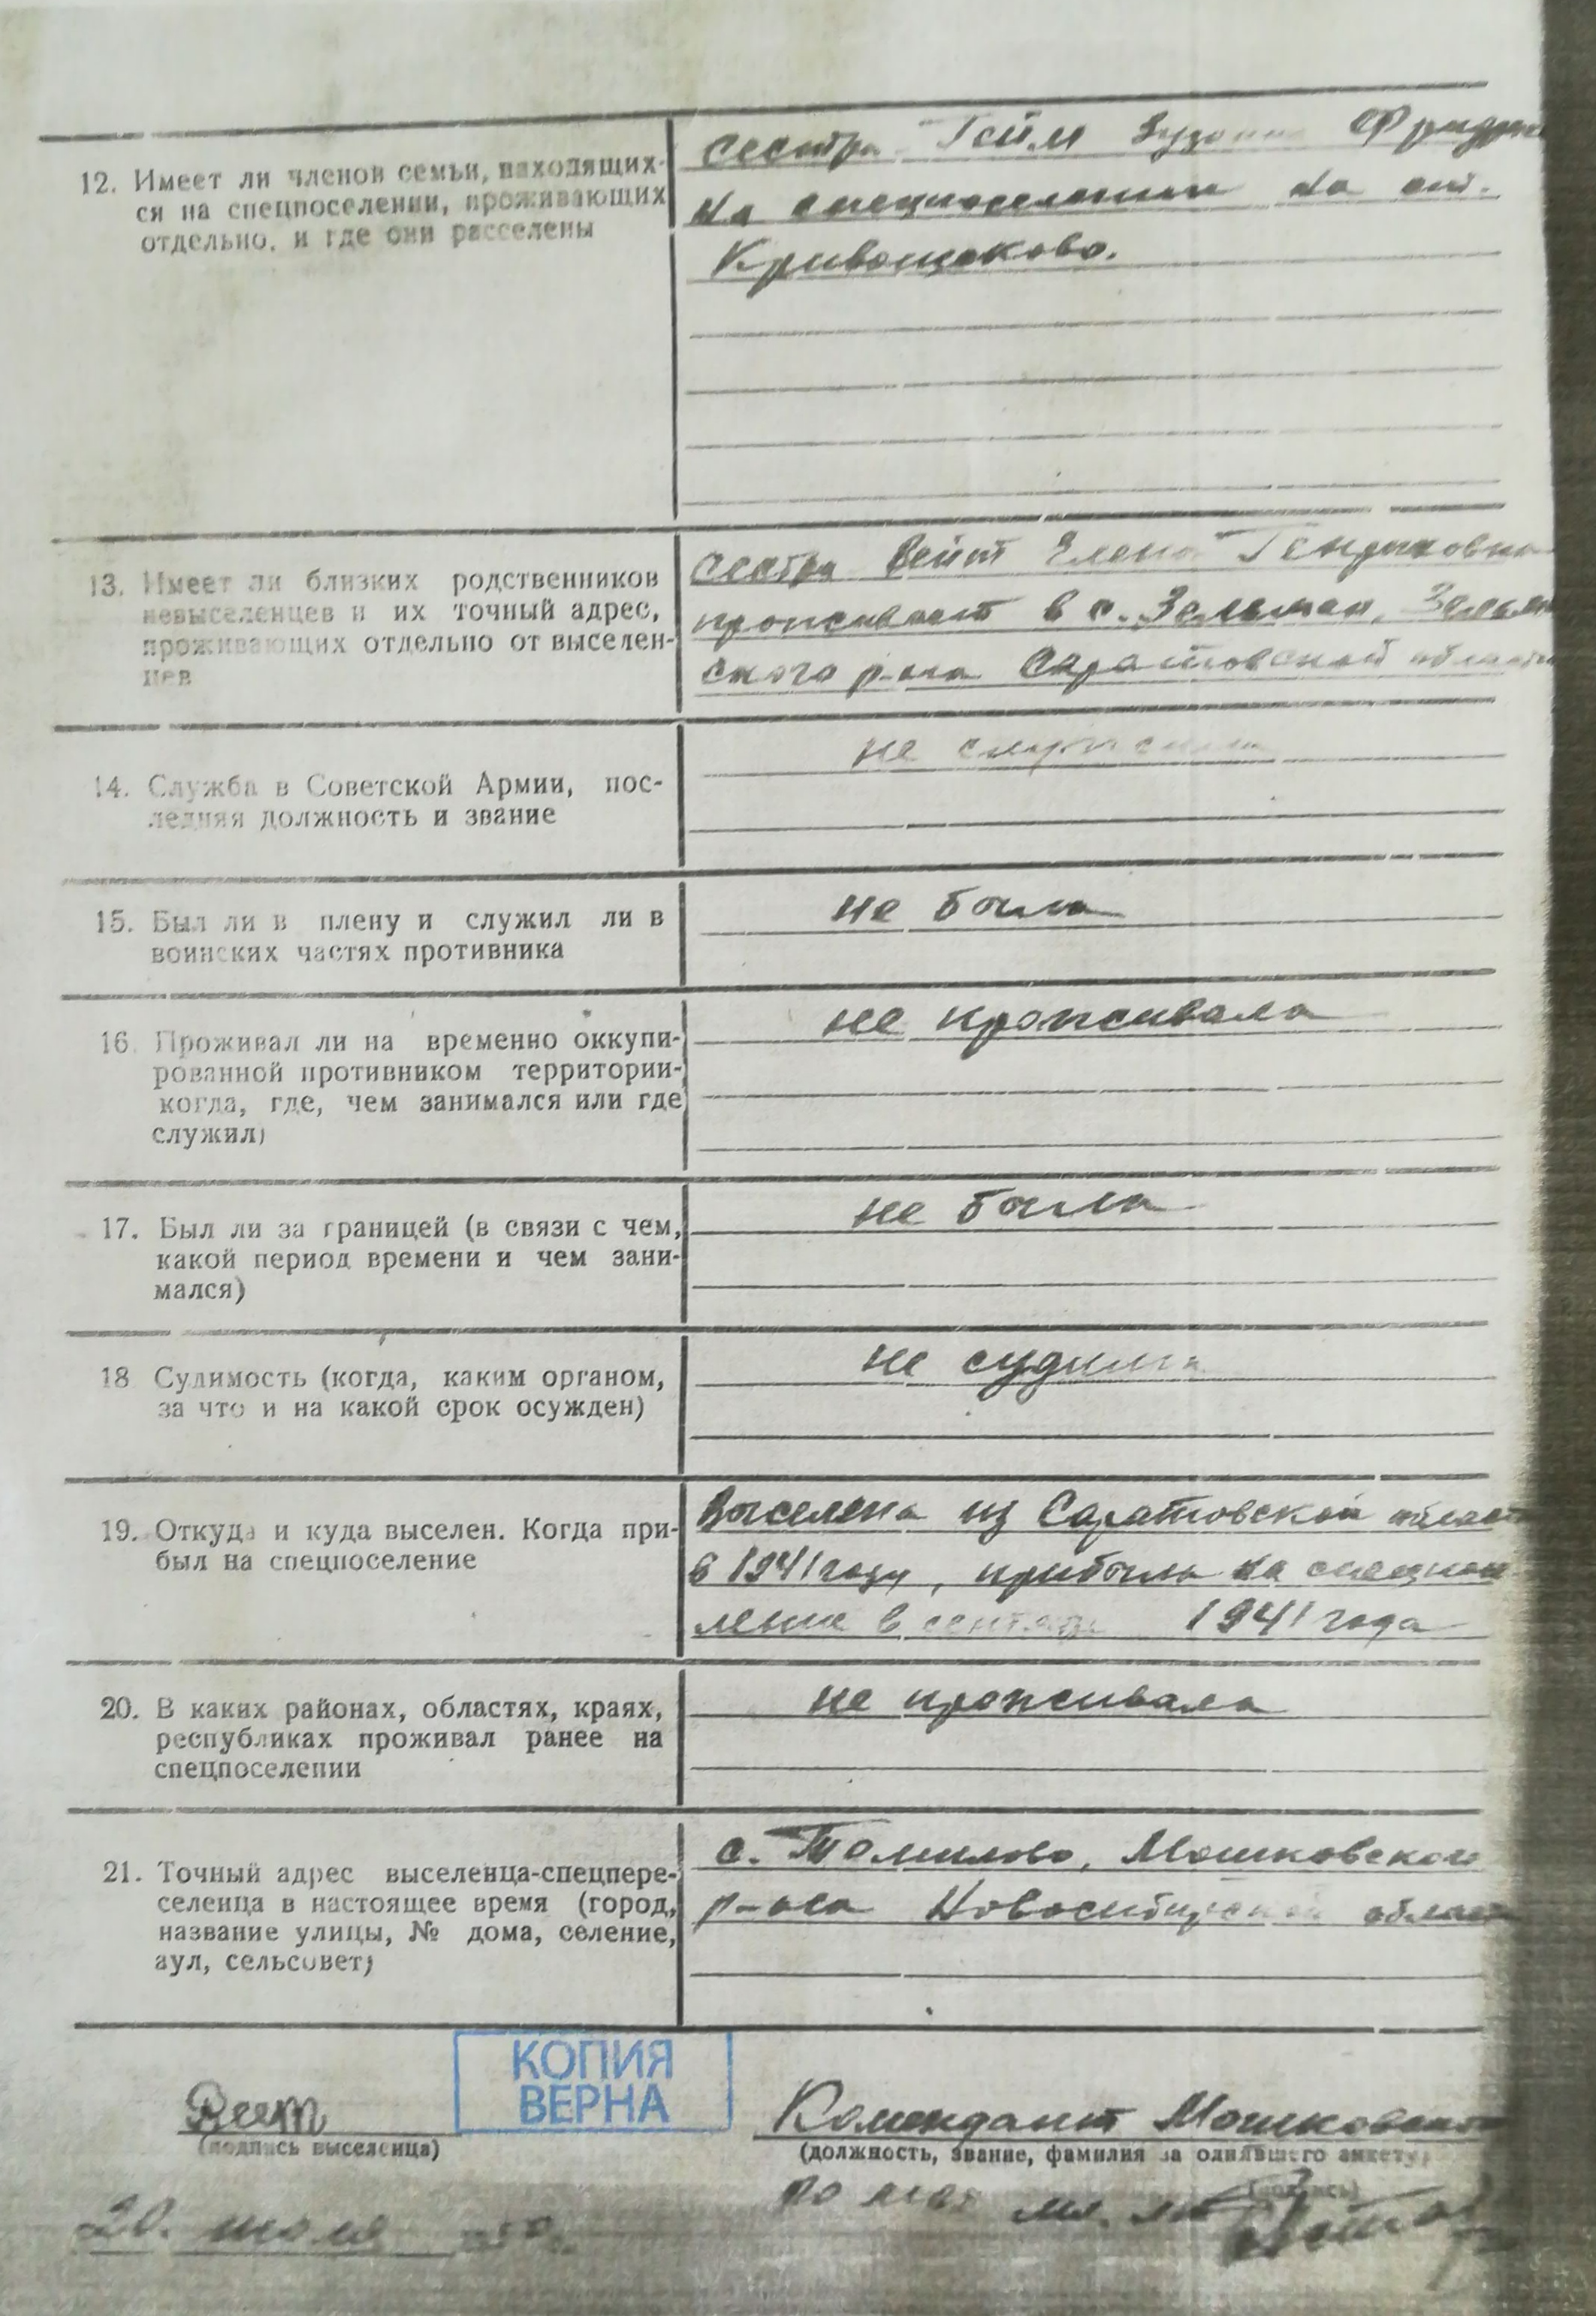 12. Имеет ли членов семьи, находящих-
ся на спецпоселении, проживающих
отдельно, и где они расселены
сестра Гейм
на спецпоселении на ст.
Кривощеково.
13. Имеет ли близких родственников
невыселенцев и их точный адрес,
проживающих отдельно от выселен-
цев
сестра Вейт Елена Гендриховна
проживает в с. Зельман, Зельман
ского р-на Саратовской области
14. Служба в Советской Армии, пос-
ледняя должность и звание
не служила
15. Был ли в плену и служил ли в
воинских частях противника
не была
16. Проживал ли на временно оккупи-
рованной противником территории-
когда, где, чем занимался или где
служил)
не проживала
17. Был ли за границей (в связи с чем,
какой период времени и чем зани-
мался)
не была
18 Судимость (когда, каким органом,
за что и на какой срок осужден)
не судима
19. Откуда и куда выселен. Когда при-
был на спецпоселение
Выселена из Саратовской области
в 1941 году, прибыла на спецпосе
ление в сентябре 1941 года
20. В каких районах, областях, краях,
республиках проживал ранее на
спецпоселении
не проживала
21. Точный адрес выселенца-спецпере-
селенца в настоящее время (город,
название улицы, № дома, селение,
аул, сельсовет)
с. Томилово, Мошковского
р-на Новосибирской области
КОПИЯ
ВЕРНА
Вейт
(подпись выселенца)
Комендант Мошковской
(должность, звание, фамилия заполнявшего анкету)
(подпись)
мл. л-т
20. июля